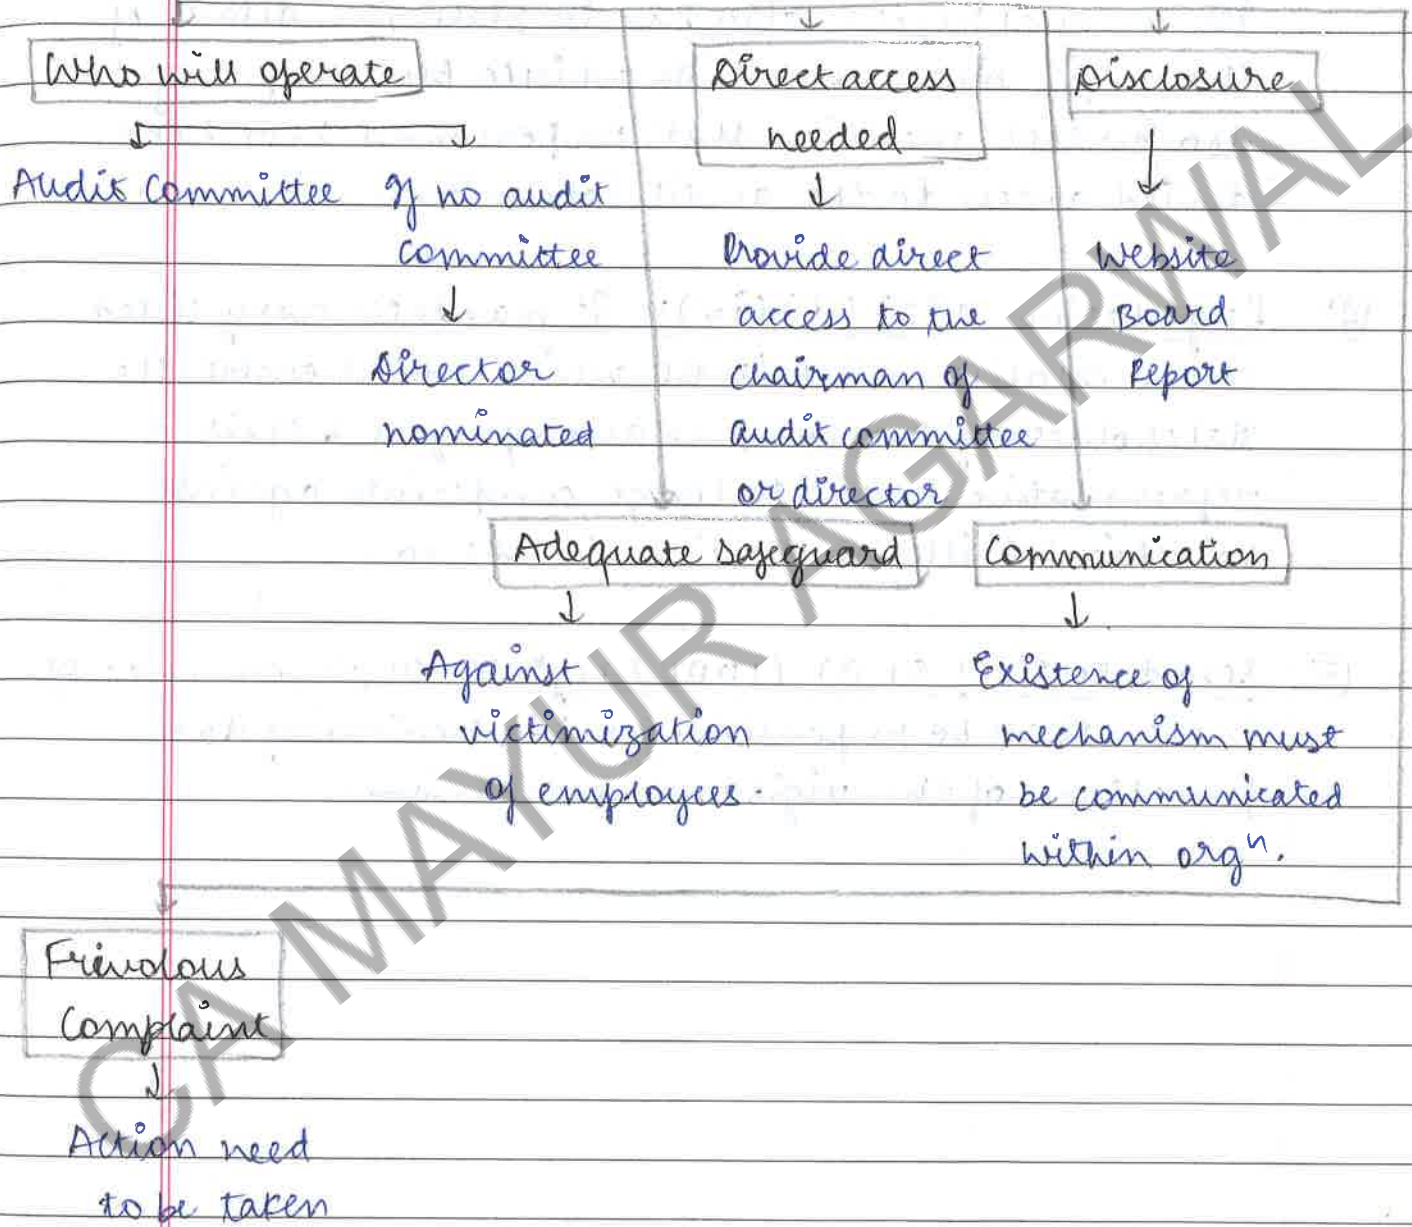 Who will operate
Audit Committee
If no audit
committee
Director
nominated
Direct access
needed
Provide direct
access to the
chairman of
audit committee
or director
Disclosure
Website
Board
Report
Adequate safeguard
Against
victimization
of employees.
Communication
Existence of
mechanism must
be communicated
within orgⁿ.
Frivolous
Complaint
Action need
to be taken
CA MAYUR AGARWAL